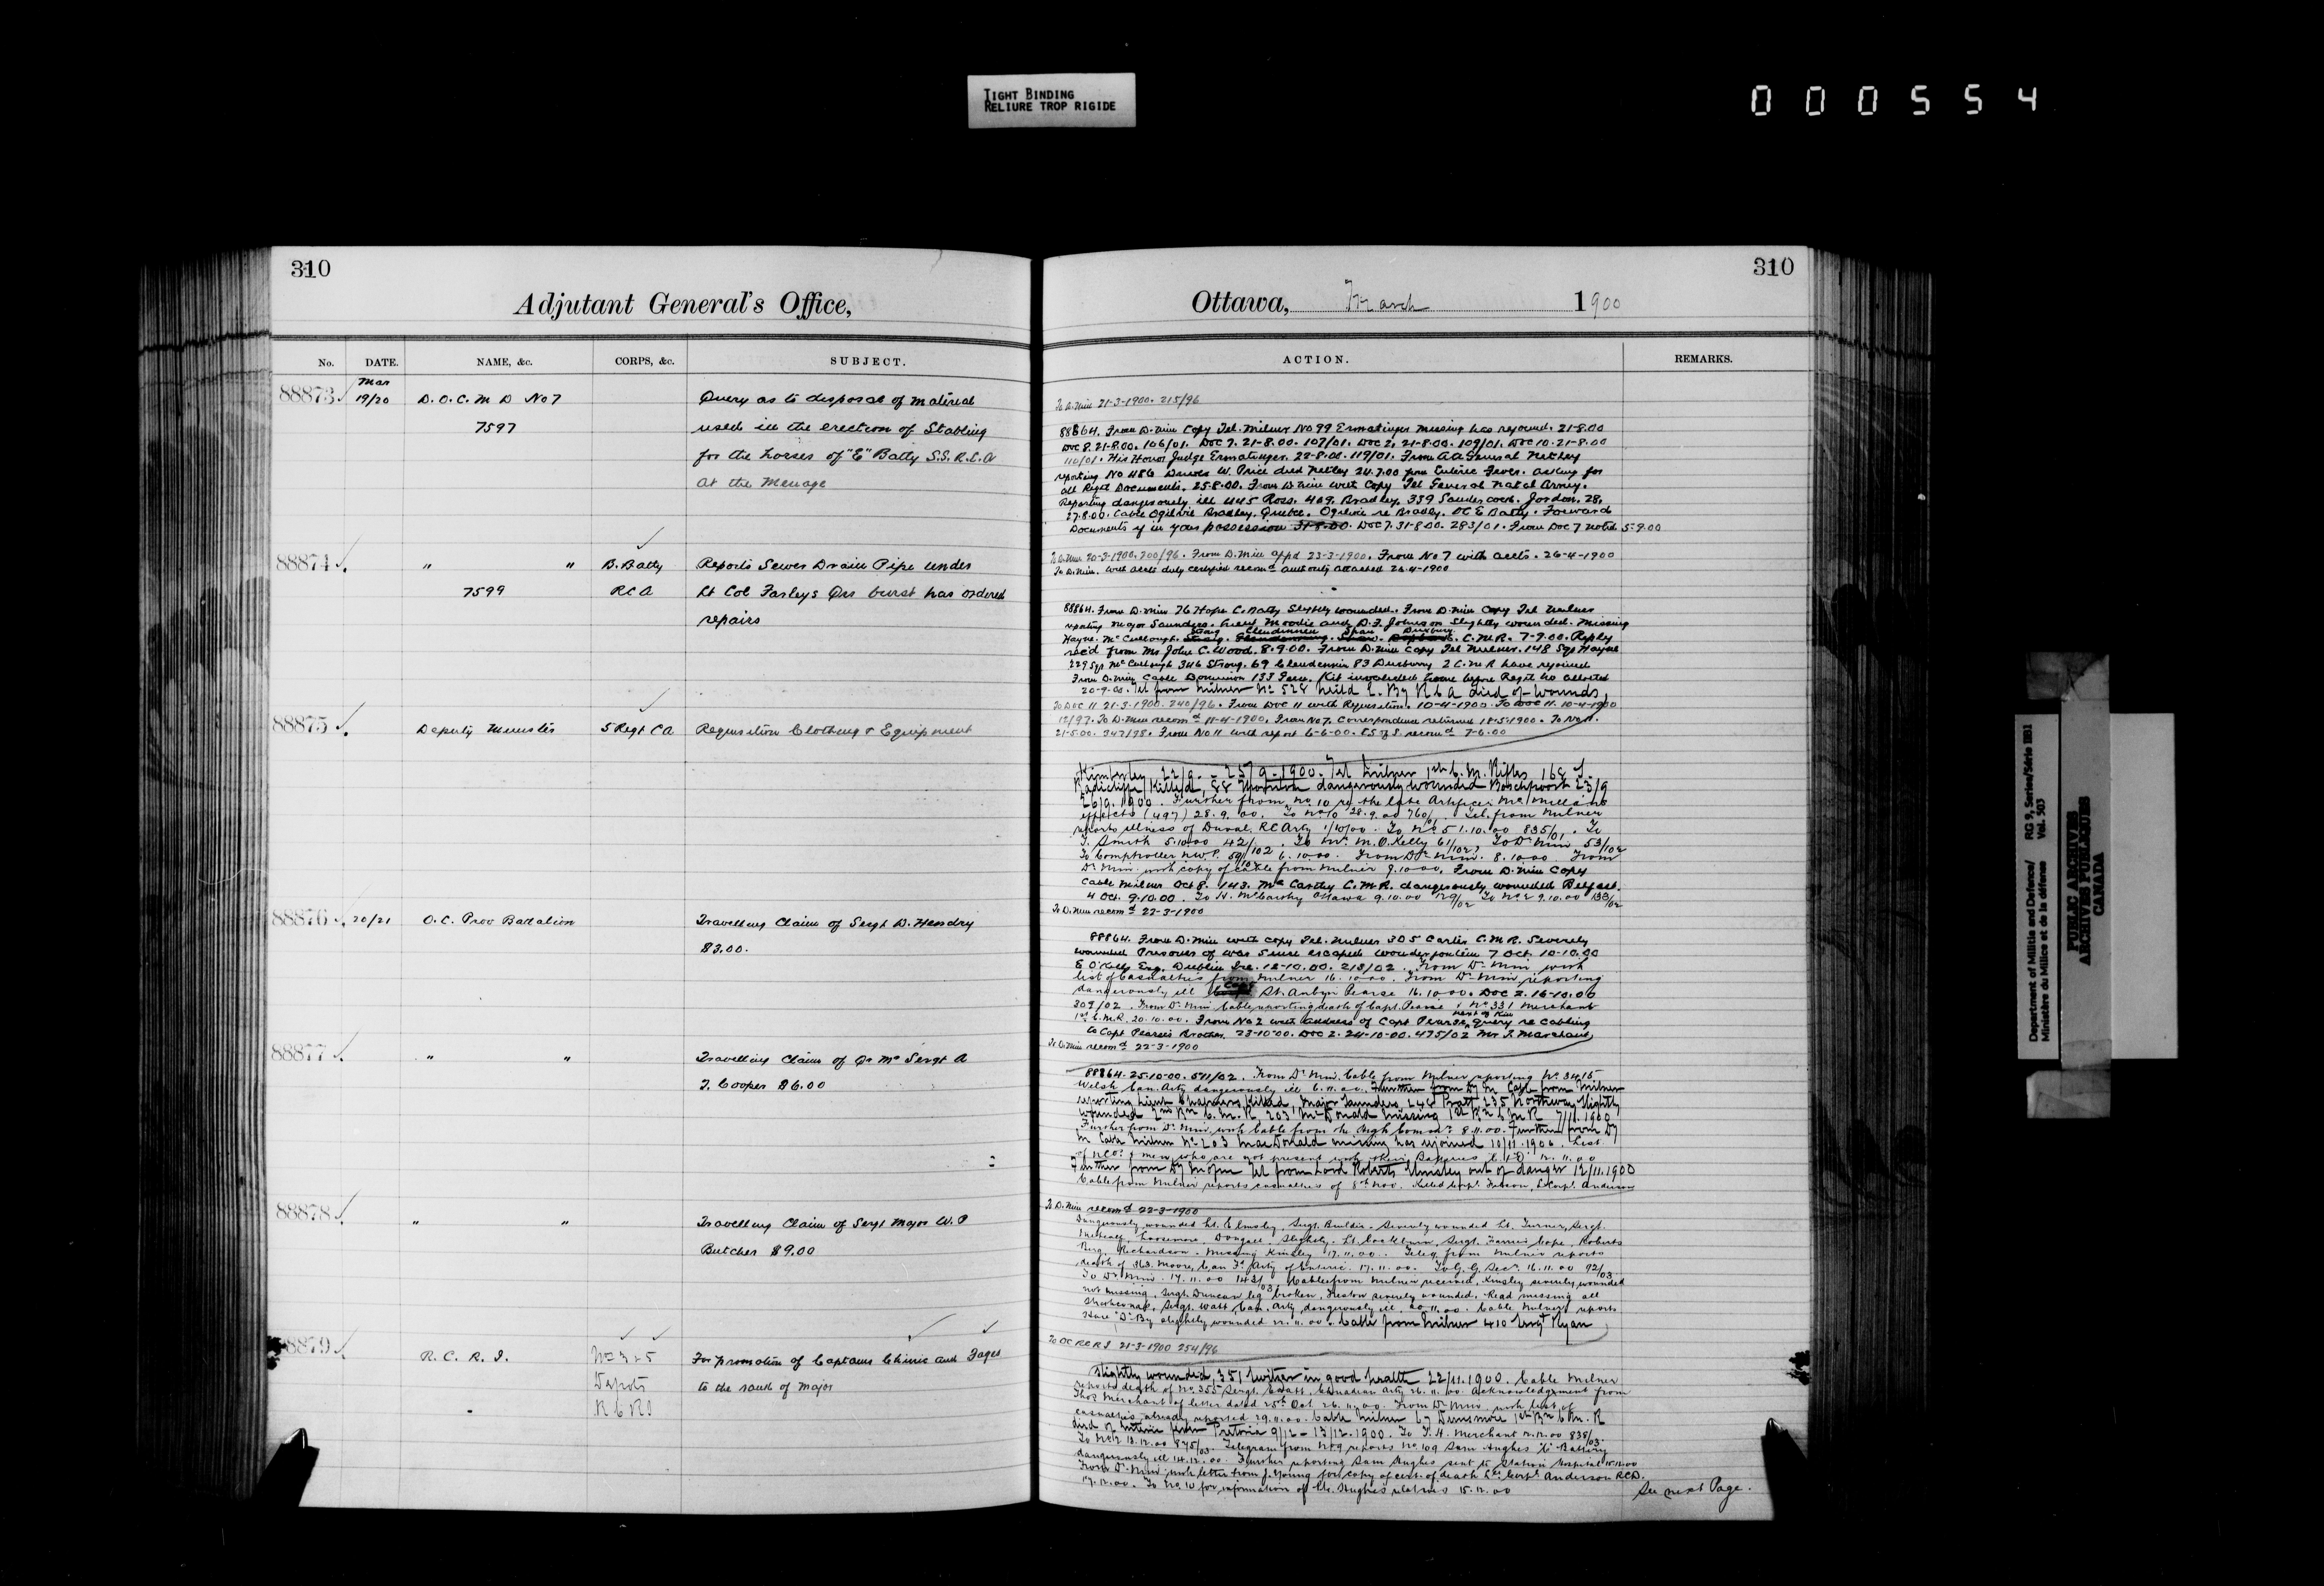 TIGHT BINDING
RELIURE TROP RIGIDE
000554
310
Adjutant General's Office,
No. DATE. NAME, &c. CORPS, &c. SUBJECT.
Mar
88873 19/20 D.O.C. M D No 7 Query as to disposal of material
7597 used in the erection of Stabling
for the horses of "E" Batty S.S. R.C.A
at the Menage
88874 " " B. Batty Reports Sewer Drain Pipe under
7599 RCA Lt Col Farleys Qrs burst has ordered
repairs
88875 Deputy Minister 5 Regt CA Requisition Clothing & Equipment
88876 20/21 O.C. Prov Battalion Travelling Claim of Sergt D. Hendry
$3.00.
88877 " " Travelling Claim of Qr Mr Sergt A
T. Cooper $6.00
88878 " " Travelling Claim of Sergt Major W. P
Butcher $9.00
88879 R. C. R. I. No 3 & 5 For promotion of Captains Chinic and Fages
Depots to the rank of Major
R C R I
310
Ottawa, March 1900
ACTION. REMARKS.
To D. Min 21-3-1900. 215/96
88864. From D. Min Copy Tel. Milner No 99 Ermatinger missing has rejoined. 21-8-00
Doc 8. 21-8.00. 106/01. Doc 7. 21-8.00. 107/01. Doc 2. 21-8.00. 109/01. Doc 10. 21-8-00
110/01. His Honor Judge Ermatinger. 22-8.00. 119/01. From AA General Netley
reporting No 486 Driver W. Price died Netley 24.7.00 from Enteric Fever. asking for
all Regtl Documents. 25-8.00. From D Min with Copy Tel General Natal Army.
Reporting dangerously ill 445 Ross. 409. Bradley. 339 Sandercock. Jordon. 28.
27.8.00. Cable Ogilvie Bradley. Quebec. Ogilvie re Bradley. OC E Batty. Forward
Documents if in your possession 31-8.00. Doc 7. 31-8.00. 283/01. From Doc 7 noted 5-9.00
To D. Min 20-3-1900. 200/96. From D. Min appd 23-3-1900. From No 7 with accts. 26-4-1900
To D. Min. with accts duly certified recomd authority attached 26-4-1900
88864. From D. Min 76 Hope C. Batty Slightly wounded. From D. Min Copy Tel Milner
reporting Major Saunders. Lieut Moodie and D. F. Johnson Slightly wounded. Missing
Strong Clendinnen Spau Duxbury
Hayne. McCullough. C.M.R. 7-9.00. Reply
rec'd from Mr John C. Wood. 8.9.00. From D. Min Copy Tel Milner. 148 Sgt Hayne
229 Sgt McCullough 346 Strong. 69 Clendennin 83 Duxbury 2 C.M.R have rejoined
From D. Min Cable Dominion 133 invalided home before Regtl No allotted
20-9-00. Tel from Milner No 524 C. By R C A died of wounds,
To DOC 11 21-3-1900. 240/96. From Doc 11 with Requisition. 10-4-1900. To Doc 11. 10-4-1900
12/97. To D. Min recomd 11-4-1900. From No 7. Correspondence returned 18-5-1900. To No 11.
21-5.00. 347/98. From No 11 with report 6-6-00. recomd 7-6.00
Kimberley 22/9. - 25/9-1900. Tel Milner 1st C. M. Rifles 168 T.
Radcliffe Killed, 88 dangerously wounded 23/9
26/9.1900. Further from No 10 re the late Artificer McMillan's
effects (497) 28.9.00. To No 10 28.9.00 760/1 Tel. from Milner
reports illness of Duval. RC Arty 1/10/00. To No 5 1.10.00 835/01. To
T. Smith 5.10.00 42/ . To Mr. M. O. Kelly 61/102, To Dr Min 53/102
To Comptroller N.W.P. 59/102 6.10.00. From Dr Min. 8.10.00 From
Dr Min with copy of cable from Milner 9.10.00, From D. Min Copy
Cable Milner Oct 8. 143. McCarthy C.M.R. dangerously wounded Belfast.
4 Oct. 9.10.00. To H. McCarthy Ottawa 9.10.00 129/02 To No 2 9.10.00 138/02
To D. Min recomd 22-3-1900
88864. From D. Min with copy Tel. Milner 305 Carter C.M.R. Severely
wounded Prisoner of war since escaped wonderfontein 7 Oct. 10-10.00
E O'Kelly Esq. Dublin Ire. 12-10.00. 213/02. From Dr Min with
list of casualties from Milner 16.10.00. From Dr Min reporting
dangerously ill Capt St. Aubyn Pearse 16.10.00. Doc 2. 16-10.00
309/02. From Dr Min Cable reporting death of Capt. Pearse & No 331 Merchant
next of Kin
1st C.M.R. 20.10.00. From No 2 with address of Capt Pearse, query re cabling
to Capt Pearse's Brother. 23-10-00. Doc 2. 24-10-00. 475/02 Mr T. Marchant,
To D. Min recomd 22-3-1900
88864. 25-10-00. 511/02. From Dr Min. Cable from Milner reporting No. 3415
Welsh Can. Arty dangerously ill 6.11.00. Further from Dy M Cable from Milner
reporting Lieut Chalmers Killed, Major Saunders, 248 Pratt, 235 Northway Slightly
wounded 2nd Bn C. M. R. 203 McDonald missing 1st Bn C M R 7/11.1900
Further from Dr Min with Cable from the High Comr 8.11.00. Further from Dy
M Cable Milner No 203 MacDonald missing has rejoined 10/11.1900. List
of NCOs & men who are not present with their Batteries 12.11.00
Further from Dy M of Tel from Lord Roberts Elmsley out of danger 12/11.1900
Cable from Milner reports casualties of 8th Nov. Killed Corpl. , L. Corpl. Anderson
To D. Min recomd 22-3-1900
Dangerously wounded Lt. Elmsley, Sergt. Builder. Severely wounded Lt. Turner, Sergt.
Metcalf, Loosemore, Dougall. Slightly. Lt. Cockburn, Sergt. Farrie Cope, Roberts
Berg, Richardson. Missing Kinsley 17.11.00. Teleg. from Milner reports
death of 363. Moore, Can Fd Arty of Enteric. 17.11.00. To G. G. Secy. 16.11.00 92/03
To Dr Min. 17.11.00 142/03. Cable from Milner received, Kinsley severely wounded
not missing, Sergt. Duncan leg broken, severely wounded. Read missing all
, Sergt. Watt Can. Arty dangerously ill. 20.11.00. Cable Milner reports
Hare "D" By slightly wounded 22.11.00. Cable from Milner 410 Ryan
To OC RCRI 21-3-1900 254/96
slightly wounded, 351 in good health 22/11.1900. Cable Milner
reports death of No 355 Sergt. , Canadian Arty 26.11.00. Acknowledgement from
Thos Merchant of letter dated 25th Oct. 26.11.00. From Dr Min, with list of
casualties already reported 29.11.00. Cable Milner 67 Dunsmore 1st Bn C M. R
died of Enteric fever Pretoria 9/12 - 13/12.1900. To T. H. Merchant 12.12.00 838/03.
To No 2 13.12.00 875/03. Telegram from No 9 reports No 109 Sam Hughes "K" Battery
dangerously ill 14.12.00. Further reporting Sam Hughes sent to Station Hospital 15.12.00
From Dr Min with letter from J. Young for copy of cert. of death Lce Corpl Anderson RCD.
17.12.00. To No. 10 for information of Mr. Hughes relatives 15.12.00
See next Page.
Department of Militia and Defence/ RG 9, Series/Série IIB1
Ministère du Milice et de la défence Vol. 503
PUBLIC ARCHIVES
ARCHIVES PUBLIQUES
CANADA